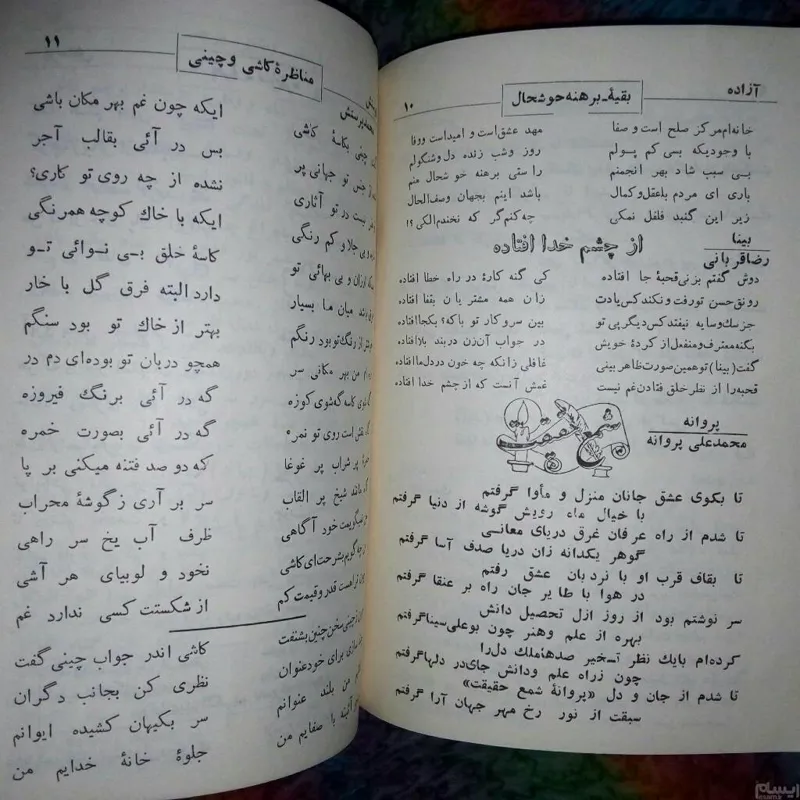 آزاده
بقیهٔ ـ برهنه خوشحال
۱۰
خانه‌ام مرکز صلح است و صفا مهد عشق است و امید است ووفا
با وجودیکه بسی کم پولم روز وشب زنده دل وشنگولم
بی سبب شاد بهر انجمنم راستی برهنه خوشحال منم
باری ای مردم باعقل و کمال باشد اینم بجهان وصف‌الحال
زیر این گنبد فلفل نمکی چه‌کنم گر که نخندم الکی ؟!
بینا
رضاقربانی
از چشم خدا افتاده
دوش گفتم بزنی قحبهٔ جا افتاده کی گنه کارهٔ در راه خطا افتاده
رونق حسن تورفت ونکند کس یادت زان همه مشتریان بقفا افتاده
جز سگ وسایه نیفتد کس دیگر پی تو بین سروکار تو باکه؟ بکجا افتاده
بگنه معترف ومنفعل از کردهٔ خویش در جواب آن زن دربند بلا افتاده
گفت (بینا) توهمین صورت ظاهر بینی غافلی زانکه چه خون دردل ما افتاده
قحبه را از نظر خلق فتادن غم نیست غمش آنست که از چشم خدا افتاده
شمع حقیقت
پروانه
محمدعلی پروانه
تا بکوی عشق جانان منزل و مأوا گرفتم
با خیال ماه رویش گوشه از دنیا گرفتم
تا شدم از راه عرفان غرق دریای معانی
گوهر یکدانه زان دریا صدف آسا گرفتم
تا بقاف قرب او با نردبان عشق رفتم
در هوا با طایر جان راه بر عنقا گرفتم
سر نوشتم بود از روز ازل تحصیل دانش
بهره از علم وهنر چون بوعلی سینا گرفتم
کرده‌ام بایك نظر تسخیر صدها ملك دل‌را
چون زراه علم ودانش جای در دلها گرفتم
تا شدم از جان و دل «پروانهٔ شمع حقیقت»
سبقت از نور رخ مهر جهان آرا گرفتم
مناظرهٔ کاشی وچینی
۱۱
چینی بکاسهٔ کاشی ایکه چون غم بهر مکان باشی
تو جهانی پر بس در آئی بقالب آجر
نیست در تو آثاری نشده از چه روی تو کاری؟
بی جلا و کم رنگی ایکه با خاك کوچه همرنگی
ارزان و بی بهائی تو کاسهٔ خلق بی نوائی تو
میان ما بسیار دارد البته فرق گل با خار
از رنگ تو بود رنگم بهتر از خاك تو بود سنگم
من بهر مکانی سر همچو دربان تو بوده‌ای دم در
کاسه گه شوی کوزه گه در آئی برنگ فیروزه
است روی تو نمره گه در آئی بصورت خمره
پر شراب پر غوغا که دو صد فتنه میکنی بر پا
مانند شیخ پر القاب سر بر آری ز گوشهٔ محراب
خود آگاهی ظرف آب یخ سر راهی
چه گویم بشرحت ای کاشی نخود و لوبیای هر آشی
قدر وقیمت کم از شکستت کسی ندارد غم
چینی سخن چنین بشنفت کاشی اندر جواب چینی گفت
سازی برای خود عنوان نظری کن بجانب دگران
من بلند عنوانم سر بکیهان کشیده ایوانم
آئینه با صفایم من جلوهٔ خانهٔ خدایم من
ایسام
esam.ir